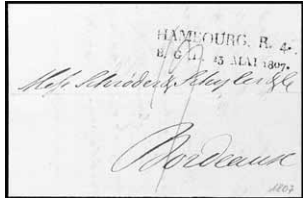 HAMBOURG. R. 4.
B. G. D. 13 MAI 1807.
Messrs Schröder & Schyler & Co
Bordeaux
1807